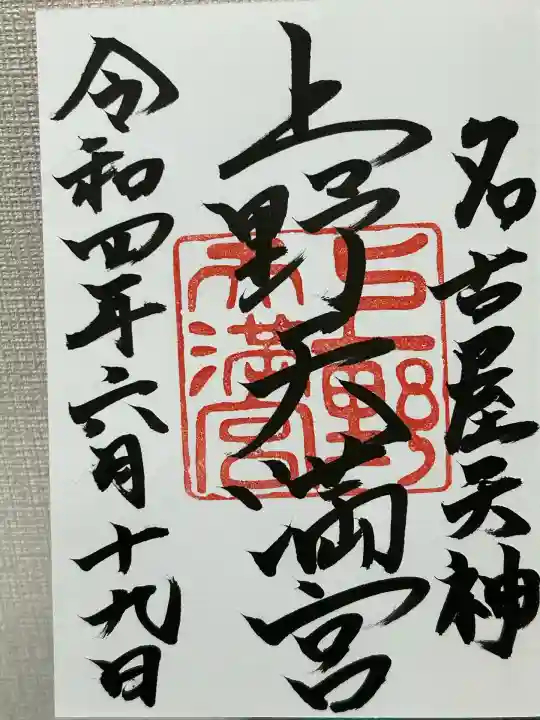 名古屋天神
上野天満宮
上野
天満宮
令和四年六月十九日